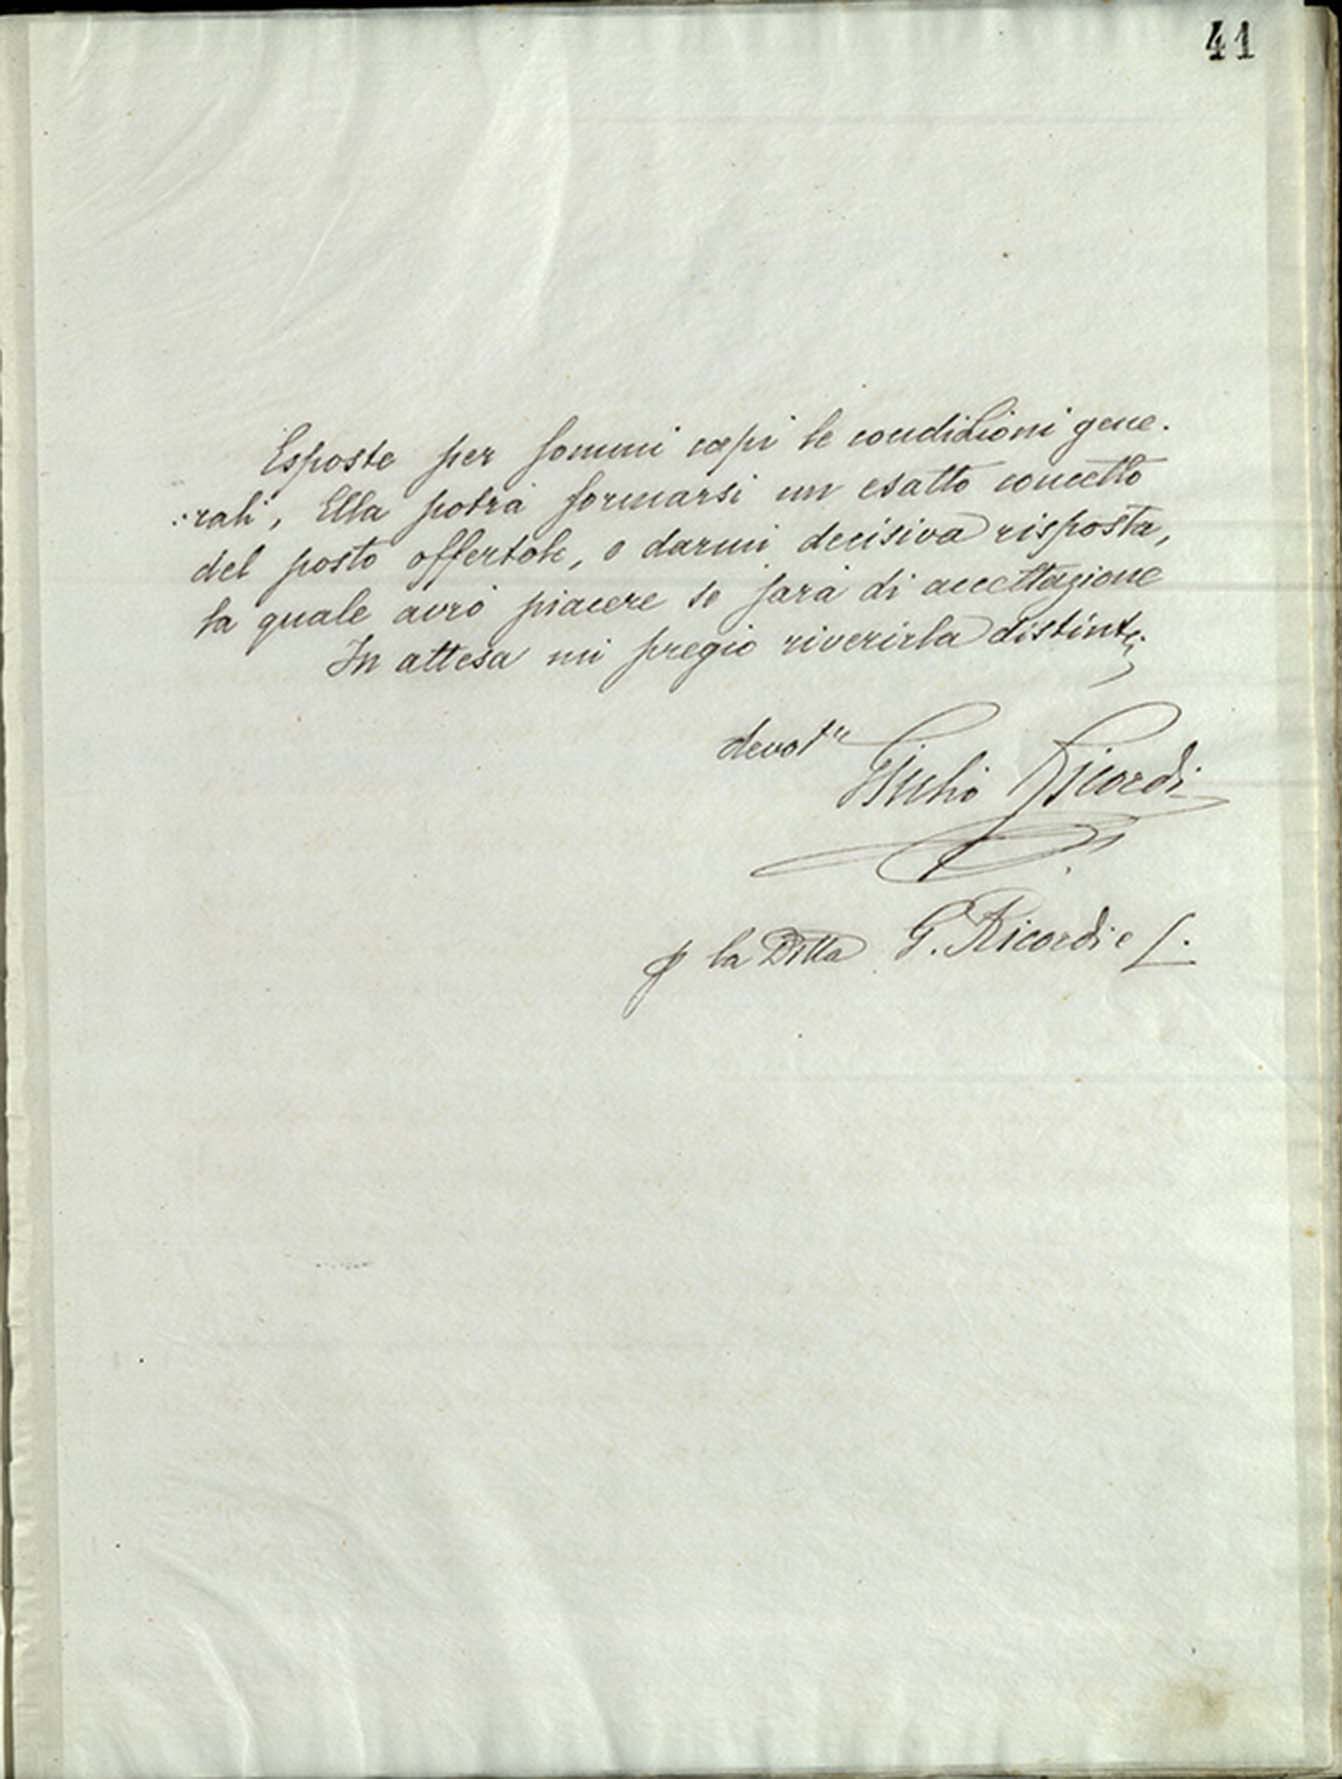 41
Esposte per sommi capi le condizioni gene-
:rali, Ella potrà formarsi un esatto concetto
del posto offertole, e darmi decisiva risposta,
la quale avrò piacere se sarà di accettazione
In attesa mi pregio riverirla distint
devot
Giulio Ricordi
p la Ditta G. Ricordi e C.